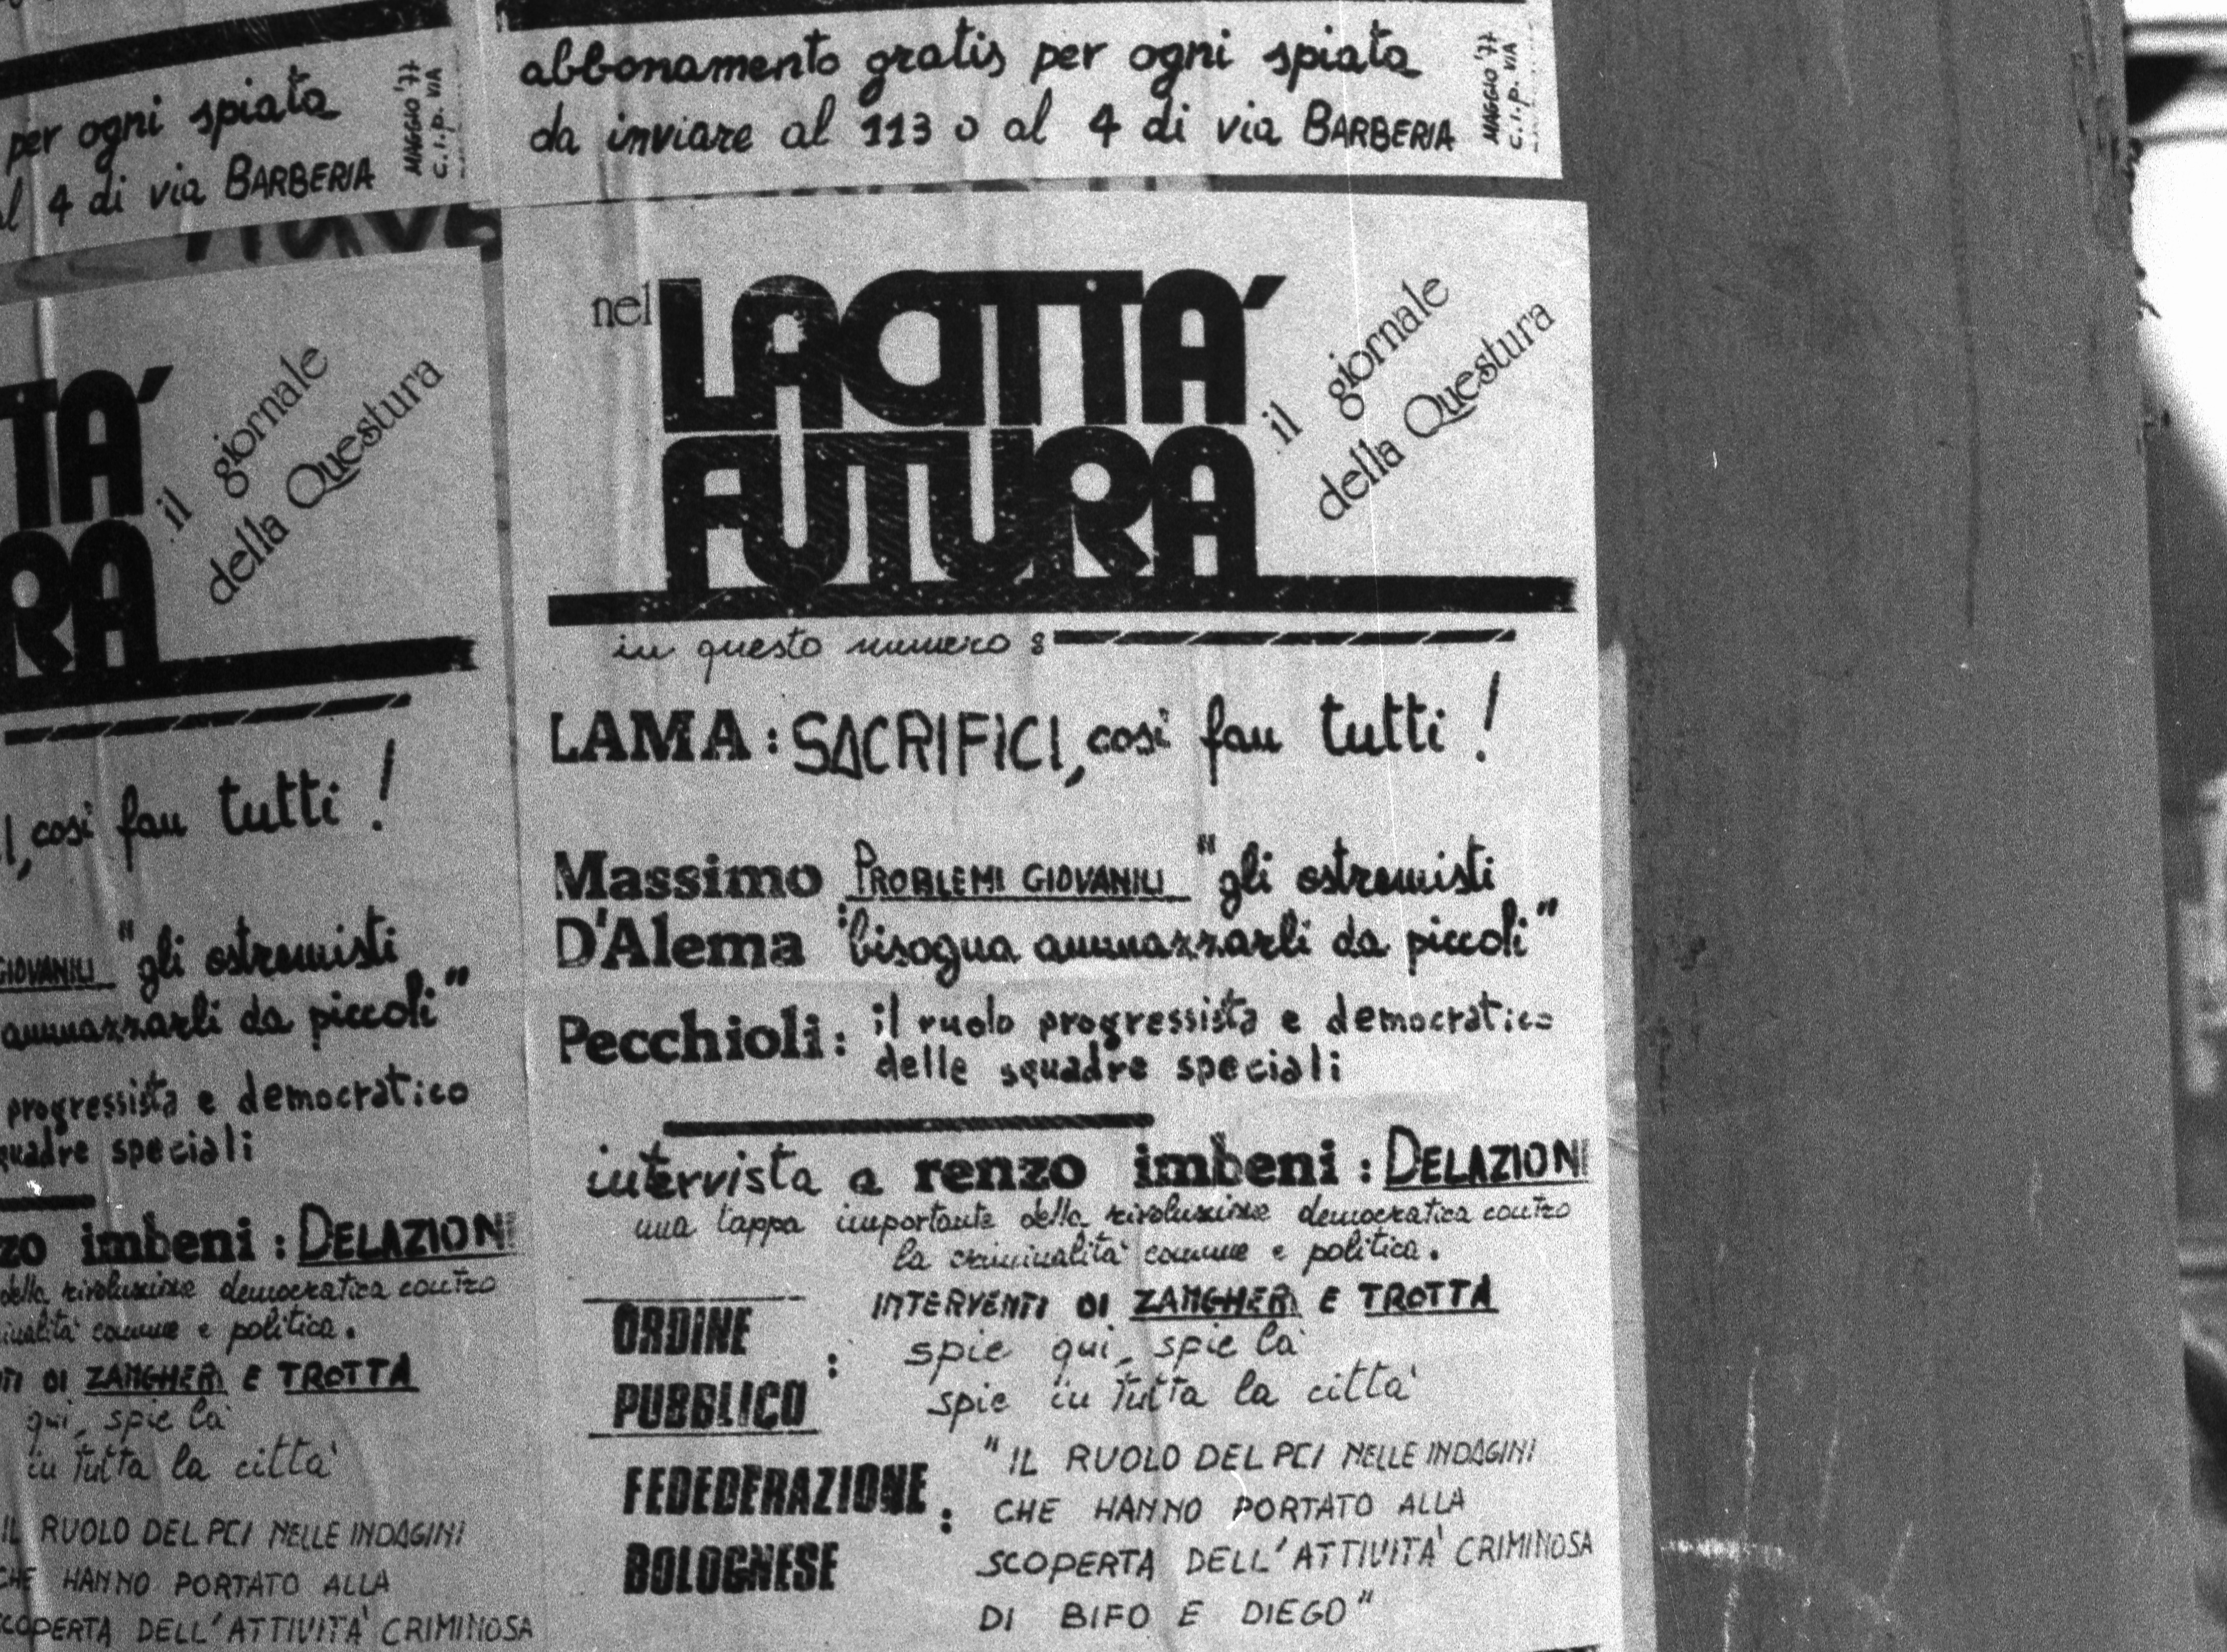 per ogni spiata
al 4 di via BARBERIA
MAGGIO '77
C.I.P. VIA
abbonamento gratis per ogni spiata
da inviare al 113 o al 4 di via BARBERIA
MAGGIO '77
C.I.P. VIA
TA'
RA
il giornale
della Questura
I, così fan tutti!
GIOVANILI "gli estremisti
ammazzarli da piccoli"
progressista e democratico
squadre speciali
zo imbeni: DELAZIONI
della rivoluzione democratica contro
criminalità comune e politica.
TI DI ZANGHERI E TROTTA
qui, spie là
in tutta la città
IL RUOLO DEL PCI NELLE INDAGINI
CHE HANNO PORTATO ALLA
SCOPERTA DELL'ATTIVITA' CRIMINOSA
nel LA CITTA'
FUTURA
il giornale
della Questura
in questo numero:
LAMA: SACRIFICI, così fan tutti!
Massimo PROBLEMI GIOVANILI "gli estremisti
D'Alema: bisogna ammazzarli da piccoli"
Pecchioli: il ruolo progressista e democratico
delle squadre speciali
intervista a renzo imbeni: DELAZIONI
una tappa importante della rivoluzione democratica contro
la criminalità comune e politica.
INTERVENTI DI ZANGHERI E TROTTA
ORDINE
PUBBLICO:
spie qui, spie là
spie in tutta la città
FEDEDERAZIONE
BOLOGNESE:
"IL RUOLO DEL PCI NELLE INDAGINI
CHE HANNO PORTATO ALLA
SCOPERTA DELL'ATTIVITA' CRIMINOSA
DI BIFO E DIEGO"